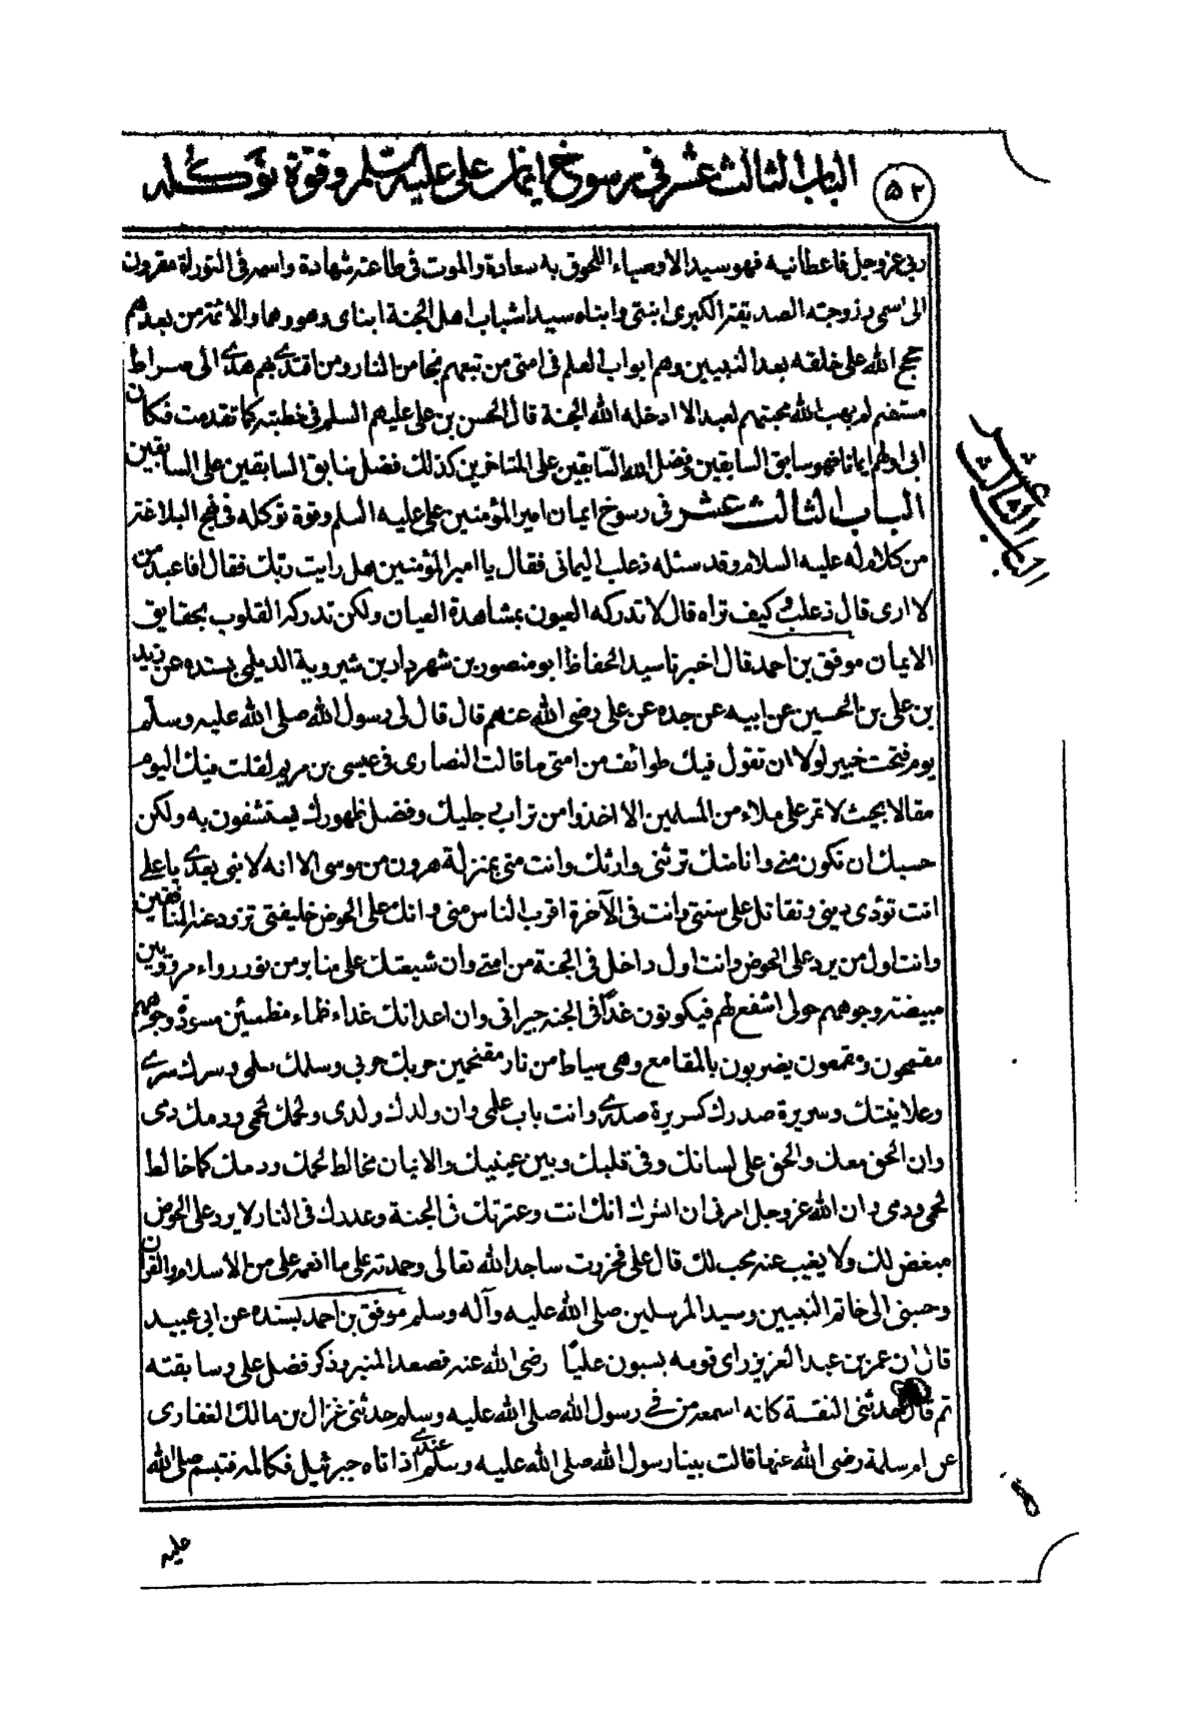 الباب الثالث عشر في رسوخ ايمان على عليه السلم وقوة توكله
٥٢
ربى عز وجل فاعطانيه فهو سيد الاوصياء اللحوق به سعادة والموت في طاعته شهادة واسمه في التوراة مقرون
الى اسمى وزوجته الصديقة الكبرى ابنتى وابناه سيدا شباب اهل الجنة ابناى وهو وهما والائمة من بعدهم
حجج الله على خلقه بعد النبيين وهم ابواب العلم في امتى من تبعهم نجا من النار ومن اقتدى بهم هدى الى صراط
مستقيم لم يهب الله محبتهم لعبد الا ادخله الله الجنة قال الحسن بن على عليهم السلم في خطبته كما تقدمت فكان
ابى اولهم ايمانا فهو سابق السابقين وفضل الله السابقين على المتاخرين كذلك فضل سابق السابقين على السابقين
الباب الثالث عشر في رسوخ ايمان امير المؤمنين على عليه السلم وقوة توكله في نهج البلاغة
من كلام له عليه السلام وقد سئله ذعلب اليمانى فقال يا امير المؤمنين هل رايت ربك فقال افاعبد من
لا ارى قال ذعلب وكيف تراه قال لا تدركه العيون بمشاهدة العيان ولكن تدركه القلوب بحقايق
الايمان موفق بن احمد قال اخبرنا سيد الحفاظ ابو منصور بن شهردار بن شيروية الديلمى بسنده عن زيد
بن على بن الحسين عن ابيه عن جده عن على رضى الله عنهم قال قال لى رسول الله صلى الله عليه وسلم
يوم فتحت خيبر لولا ان تقول فيك طوائف من امتى ما قالت النصارى في عيسى بن مريم لقلت فيك اليوم
مقالا بحيث لا تمر على ملاء من المسلمين الا اخذوا من تراب رجليك وفضل طهورك يستشفون به ولكن
حسبك ان تكون منى وانا منك ترثنى وارثك وانت منى بمنزلة هرون من موسى الا انه لا نبى بعدى يا على
انت تؤدى دينى وتقاتل على سنتى وانت في الآخرة اقرب الناس منى وانك على الحوض خليفتى تزود عنه المنافقين
وانت اول من يرد على الحوض وانت اول داخل في الجنة من امتى وان شيعتك على منابر من نور رواء مرويين
مبيضة وجوههم حولى اشفع لهم فيكونون غدًا في الجنه جيرانى وان اعدائك غداء ظماء مظمئين مسودة وجوههم
مقمحون ومقمعون يضربون بالمقامع وهى سياط من نار مقتحمين حربك حربى وسلمك سلمى وسرك سرى
وعلانيتك وسريرة صدرك كسريرة صدرى وانت باب علمى وان ولدك ولدى ولحمك لحمى ودمك دمى
وان الحق معك والحق على لسانك وفى قلبك وبين عينيك والايمان مخالط لحمك ودمك كما خالط
لحمى ودمى وان الله عز وجل امرنى ان ابشرك انك انت وعترتك في الجنة وعدوك في النار لا يرد على الحوض
مبغض لك ولا يغيب عنه محب لك قال على فخررت ساجد الله تعالى وحمدته على ما انعم على من الاسلام والقران
وحببنى الى خاتم النبيين وسيد المرسلين صلى الله عليه وآله وسلم موفق بن احمد بسنده عن ابى عبيد
قال ان عمر بن عبد العزيز راى قومه يسبون عليًا رضى الله عنه فصعد المنبر وذكر فضل على وسابقته
ثم قال حدثنى الثقة كانه اسمعه من في رسول الله صلى الله عليه وسلم حدثنى غزال بن مالك الغفارى
عن ام سلمة رضى الله عنها قالت بينا رسول الله صلى الله عليه وسلم عندى اذ اتاه جبرئيل فكالمه فتبسم صلى الله
الباب الثالث عشر
عليه